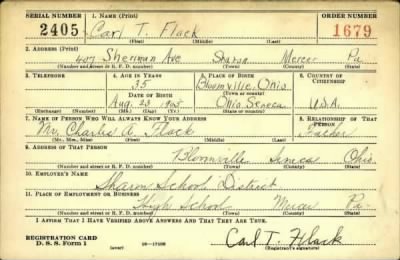 SERIAL NUMBER 1. NAME (Print) ORDER NUMBER
2405 Carl T. Flack 1679
(First) (Middle) (Last)
2. ADDRESS (Print)
407 Sherman Ave Sharon Mercer Pa.
(Number and street or R. F. D. number) (Town) (County) (State)
3. TELEPHONE 4. AGE IN YEARS 5. PLACE OF BIRTH 6. COUNTRY OF CITIZENSHIP
35 Bloomville, Ohio
DATE OF BIRTH (Town or county)
Aug. 23 1905 Ohio Seneca U.S.A.
(Mo.) (Day) (Yr.) (State or country)
7. NAME OF PERSON WHO WILL ALWAYS KNOW YOUR ADDRESS 8. RELATIONSHIP OF THAT PERSON
Mr. Charles A. Flack Father
(Mr., Mrs., Miss) (First) (Middle) (Last)
9. ADDRESS OF THAT PERSON
Bloomville Seneca Ohio
(Number and street or R. F. D. number) (Town) (County) (State)
10. EMPLOYER'S NAME
Sharon School District
11. PLACE OF EMPLOYMENT OR BUSINESS
High School Mercer Pa.
(Number and street or R. F. D. number) (Town) (County) (State)
I AFFIRM THAT I HAVE VERIFIED ABOVE ANSWERS AND THAT THEY ARE TRUE.
REGISTRATION CARD
D. S. S. Form 1 (over) Carl T. Flack
(Registrant's signature)